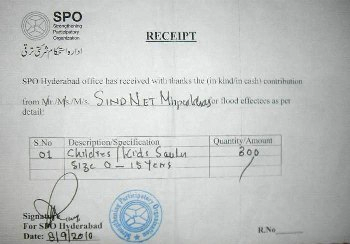 SPO
Strengthening
Participatory
Organization
ادارہ استحکام شرکتی ترقی
RECEIPT
SPO Hyderabad office has received with thanks the (in kind/in cash) contribution
from Mr./Ms/M/s. SINDNET Mirpurkhas for flood effectees as per
detail:
S.No Description/Specification Quantity/Amount
01 Children / Kids 300
Size 0 – 15 Years
Signature
For SPO Hyderabad
Date: 8/9/2010
R.No